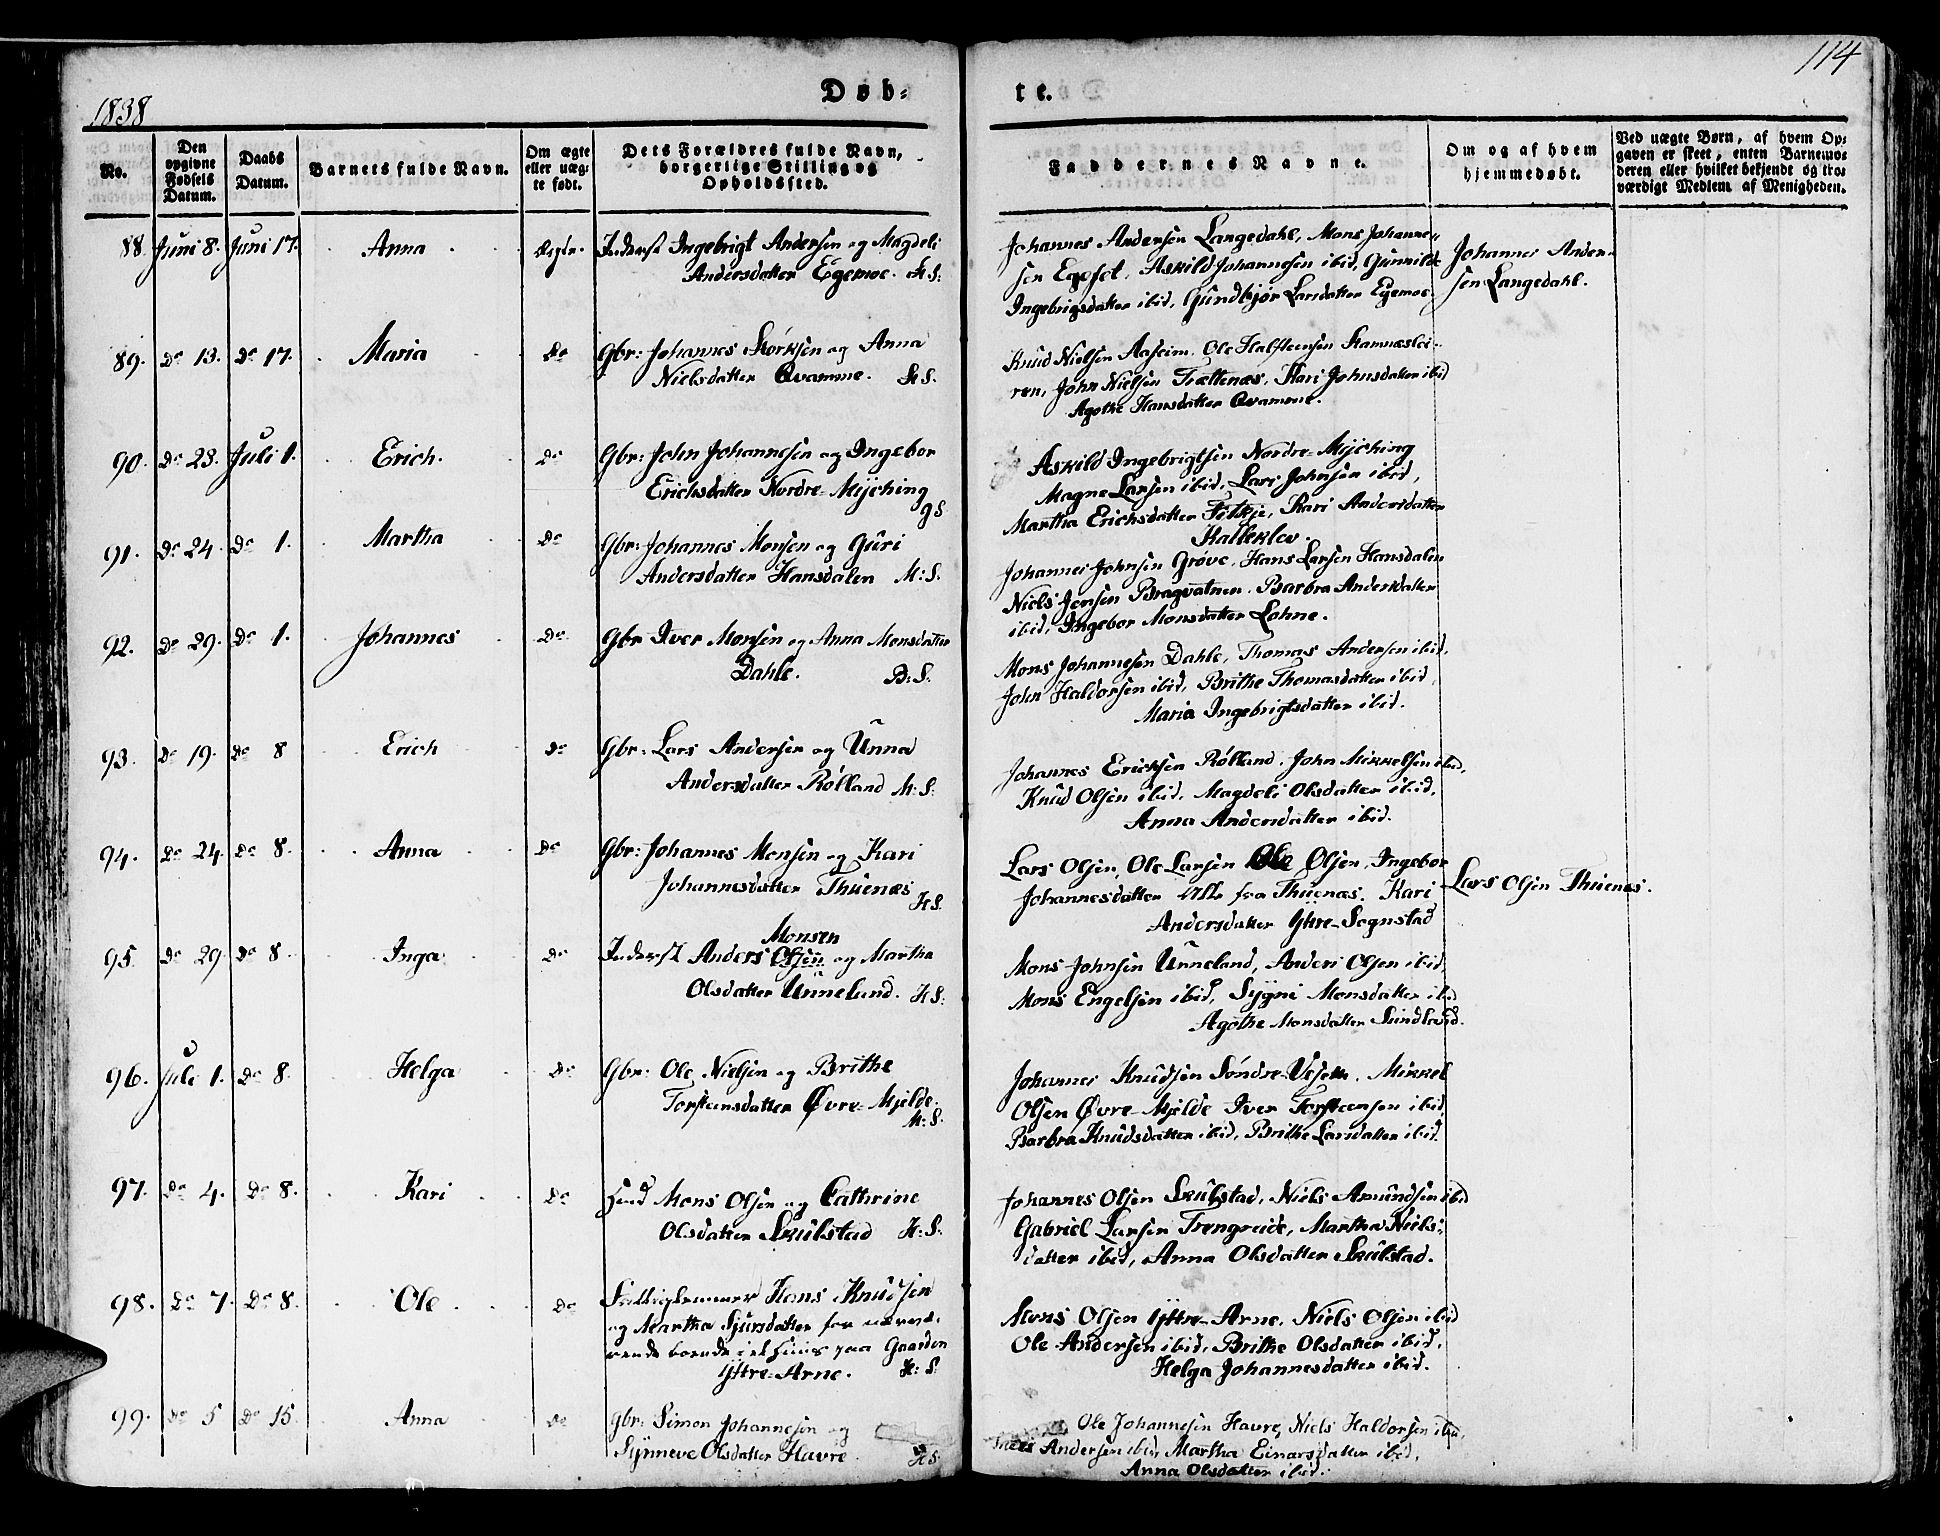 1838
Døb-
te.
114
No.
Den opgivne Fødsels Datum.
Daabs Datum.
Barnets fulde Navn.
Om ægte eller uæg-te født.
Dets Forældres fulde Navn, borgerlige Stilling og Opholdssted.
Faddernes Navne.
Om og af hvem hjemmedøbt.
Ved uægte Børn, af hvem Op-
gaven er skeet, enten Barnemo-
deren eller hvilket bekjendt og tro-
værdigt Medlem af Menigheden.
88. Juni 8. Juni 17. Anna Inderst Ingebrigt Andersen og Magdeli
Andersdatter Egemoe. H.S.
Johannes Andersen Langedahl, Mons Johanne-
sen Askild Johannesen ibid, Gunnilde
Ingebrigsdatter ibid, Gundbjør Larsdatter Egemoe.
Johannes Ander-
sen Langedahl.
89. Do 13. Do 17. Maria Do Gbr: Johannes Størksen og Anna
Nielsdatter Qvamme. H.S.
Knud Nielsen Aaseim. Ole Halsteensen Hamneslei-
ren, John Nielsen Trættenæs, Kari Johnsdatter ibid
Agothe Hansdatter Qvamme.
90. Do 23. Juli 1. Erich. Do Gbr: John Johannesen og Ingebor
Erichsdatter Nordre-Myching
g S
Askild Ingebrigtsen Nordre-Myching
Magne Larsen ibid, Lars Johnsen ibid,
Martha Erichsdatter Kari Andersdatter
Kalleklev.
91. Do 24. Do 1. Martha Do Gbr: Johannes Monsen og Guri
Andersdatter Hansdalen M: S.
Johannes Johnsen Grøve, Hans Larsen Hansdalen
Niels Jensen Bragvatnen. Barbra Andersdatter
ibid, Ingebor Monsdatter Lohne.
92. Do 29. Do 1. Johannes Do Gbr Iver Monsen og Anna Monsdatter
Dahle. B: S.
Mons Johannesen Dahle, Thomas Andersen ibid,
John Haldorsen ibid, Brithe Thomasdatter ibid,
Maria Ingebrigtsdatter ibid.
93. Do 19. Do 8 Erich Do Gbr: Lars Andersen og Unna
Andersdatter Rølland M: S:
Johannes Ericksen Rølland, John Mikkelsen ibid,
Knud Olsen ibid. Magdeli Olsdatter ibid,
Anna Andersdatter ibid.
94. Do 24. Do 8. Anna Do Gbr: Johannes Monsen og Kari
Johannesdatter Thuenæs
H S.
Lars Olsen, Ole Larsen Ole Olsen, Ingebor
Johannesdatter alle fra Thuenæs. Kari
Andersdatter Yttre-Sognstad
Lars Olsen Thuenæs.
Monsen
95. Do 29. Do 8. Inga Do Inderst Anders Olsen og Martha
Olsdatter Unnelund. H S:
Mons Johnsen Unneland, Anders Olsen ibid
Mons Engelsen ibid, Sygni Monsdatter ibid
Agothe Monsdatter Sundland.
96. Juli 1. Do 8. Helga Do Gbr: Ole Nielsen og Brithe
Torsteensdatter Øvre-Mjelde.
M: S.
Johannes Knudsen Søndre Mikkel
Olsen Øvre-Mjelde Iver Torsteensen ibid
Barbra Knudsdatter ibid, Brithe Larsdatter ibid.
97. Do 4. Do 8. Kari Do Huusmd Mons Olsen og Cathrine
Olsdatter Skulstad H: S.
Johannes Olsen Skulstad, Niels Amundsen ibid
Gabriel Larsen Trengreide, Martha Niels-
datter ibid, Anna Olsdatter Skulstad.
98. Do 7. Do 8. Ole Do Fattiglemmer Hans Knudsen
og Martha Sjursdatter for nærvæ-
rende boende i et Huus paa Gaarden
Yttre-Arne. H: S.
Mons Olsen Yttre-Arne, Niels Olsen ibid
Ole Andersen ibid, Brithe Olsdatter ibid,
Helga Johannesdatter ibid.
99. Do 5 Do 15. Anna Do Gbr: Simon Johannesen og
Synneve Olsdatter Havre H S.
Ole Johannesen Havre, Niels Haldorsen ibid,
Andersen ibid, Martha Einarsdatter ibid,
Anna Olsdatter ibid.